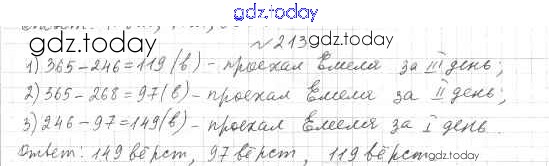 gdz.today
gdz.today
№213
1) 365-246=119(в)-проехал Емеля за III день;
2) 365-268=97(в)-проехал Емеля за II день;
3) 246-97=149(в)-проехал Емеля за I день.
Ответ: 149 вёрст, 97 вёрст, 119 вёрст.
gdz.today